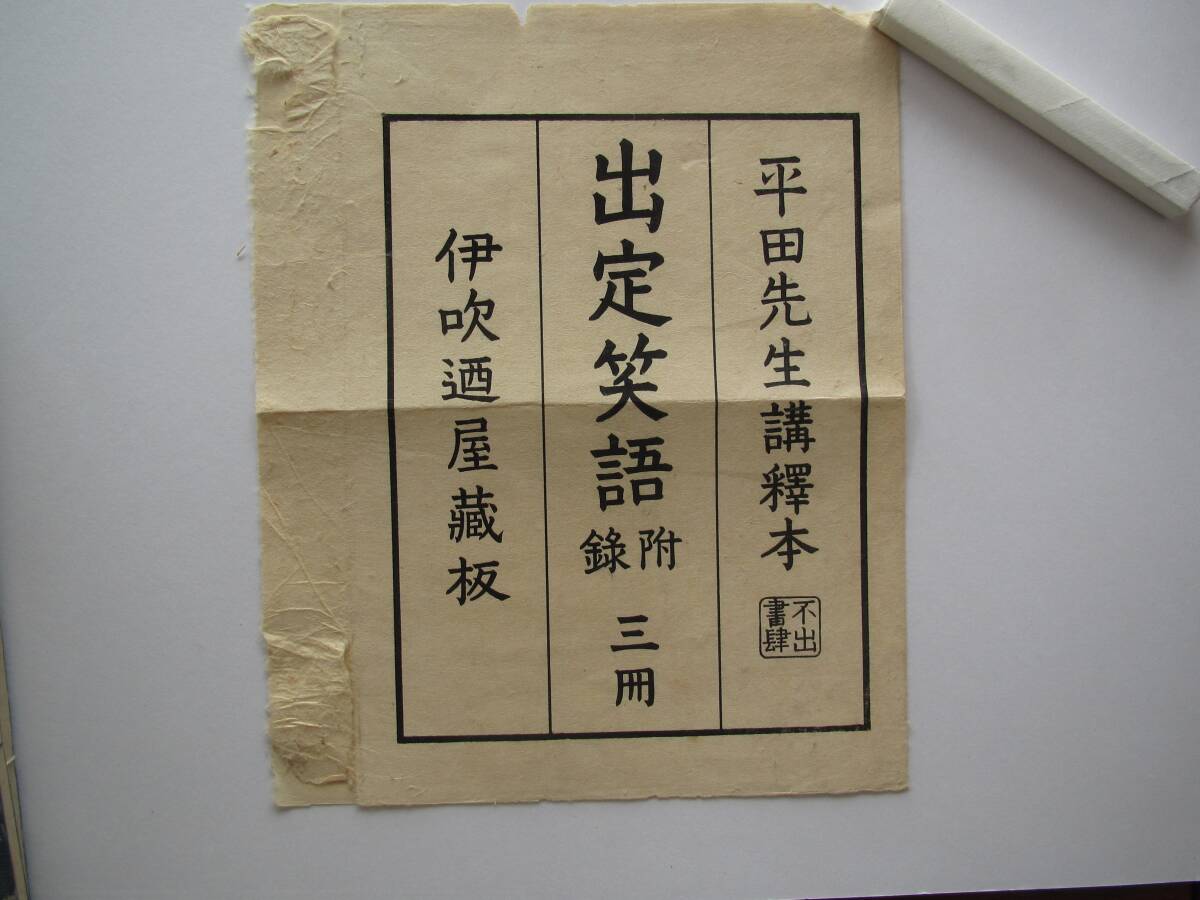 平田先生講釋本
不出
書肆
出定笑語
附
錄
三冊
伊吹迺屋藏板